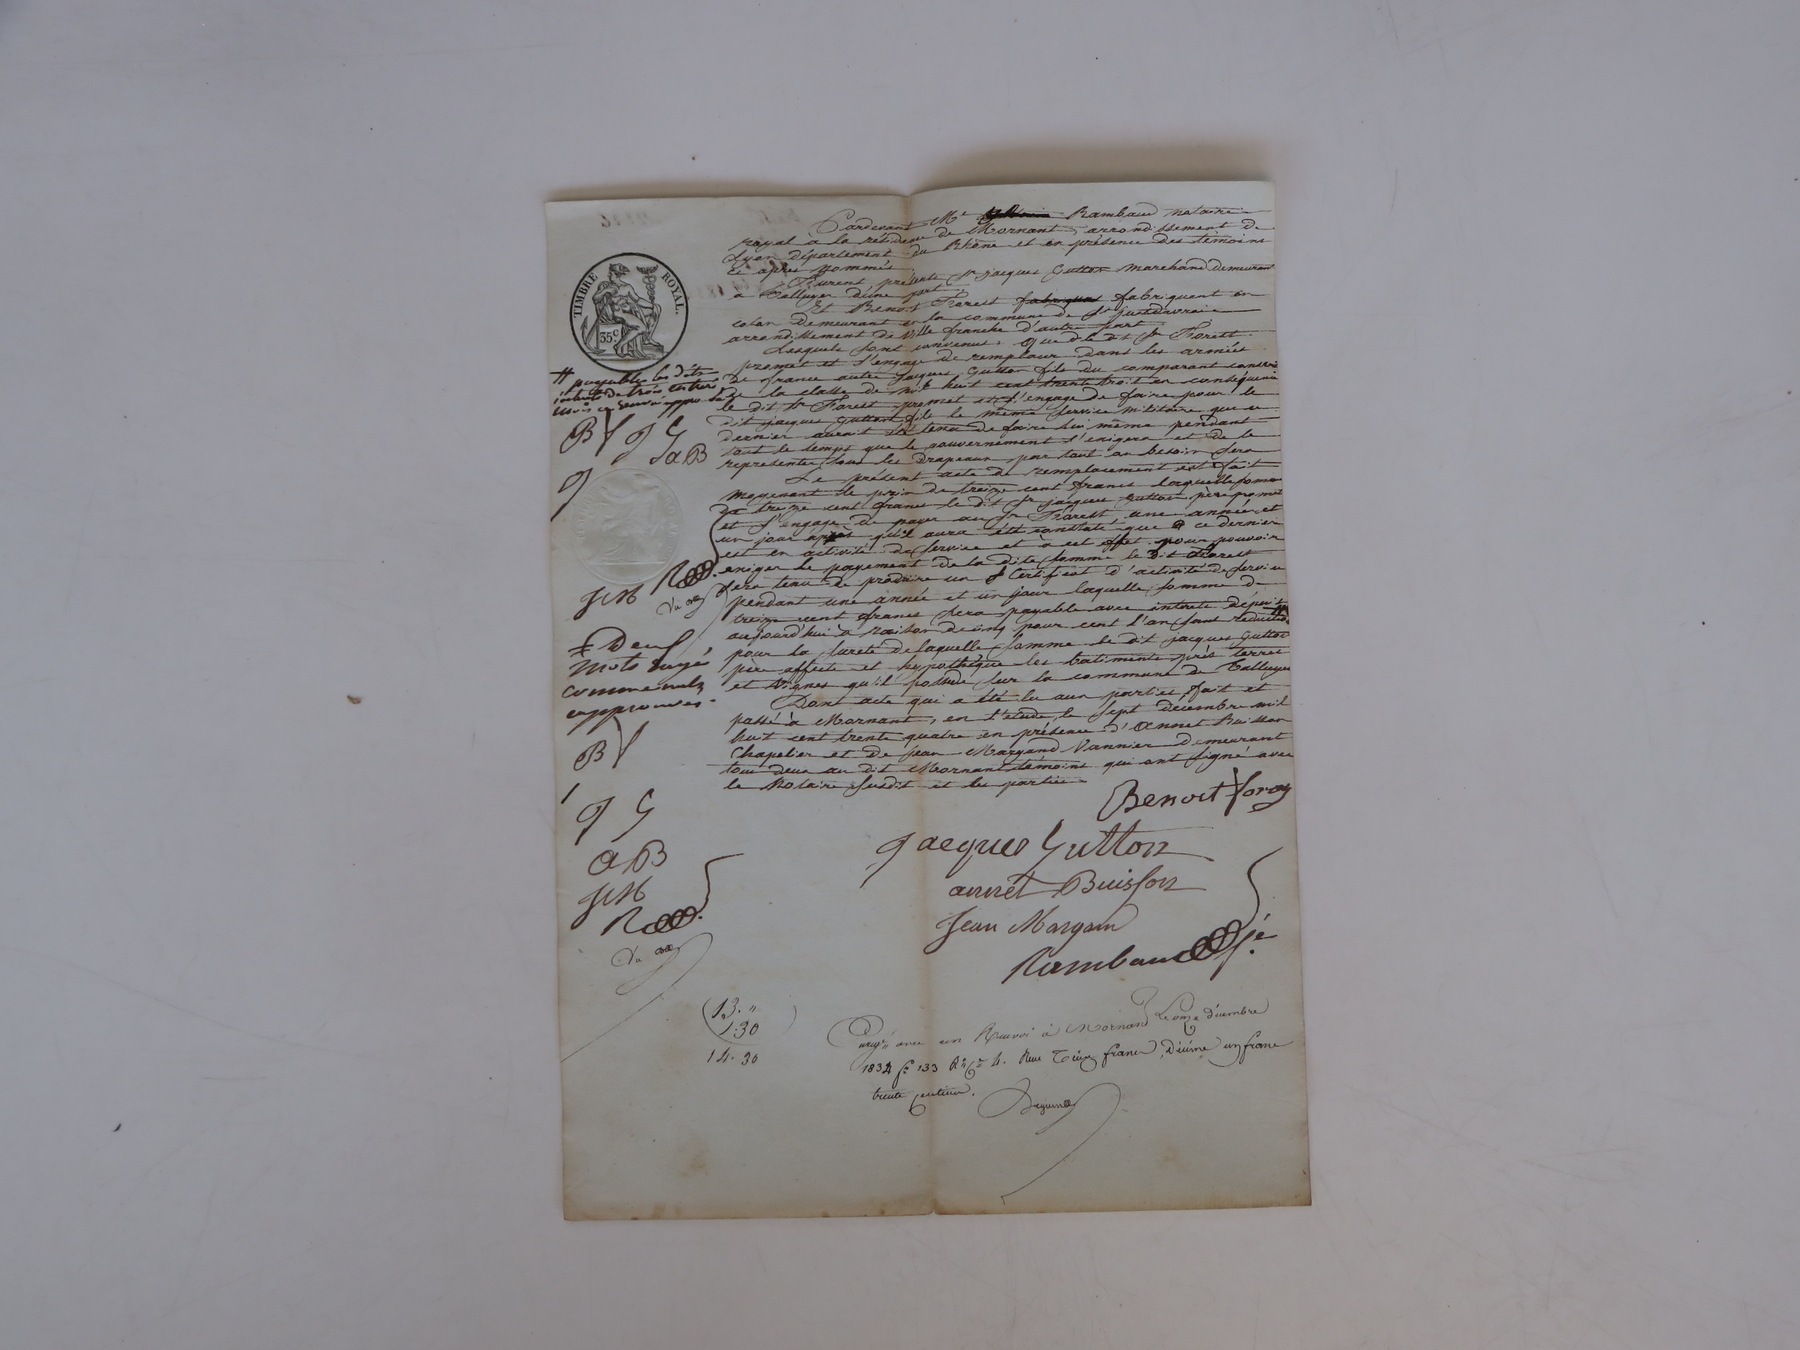 TIMBRE ROYAL.
35 c
Pardevant Me Rambaud notaire
royal à la résidence de Mornant, arrondissement de
Lyon département du Rhône et en présence des témoins
ci après nommés
Furent présents Sr jacques Gutton marchand demeurant
à Talluyer d'une part
Et Benoit Forest fabriquant en
coton demeurant en la commune de St justdavraie
arrondissement de Ville franche d'autre part
Lesquels sont convenus, Que le dit Sr Forest
promet et s'engage de remplacer dans les armées
de france autre jacques Gutton fils du comparant conscrit
de la classe de mil huit cent trente trois en conséquence
le dit Sr Forest promet et s'engage de faire pour le
dit jacques Gutton fils le même service militaire que ce
dernier aurait été tenu de faire lui même pendant
tout le temps que le gouvernement l'exigera et de le
representer sous les drapeaux par tout ou besoin sera
Le présent acte de remplacement est fait
moyenant le prix de treize cent francs laquelle somme
de treize cent francs le dit Sr jacques Gutton père promet
et s'engage de payer au Sr Forest une année et
un jour après qu'il aura été constaté que ce dernier
est en activité de service et à cet effet pour pouvoir
exiger le payement de la dite somme le dit Forest
sera tenu de produire un Certificat d'activité de service
pendant une année et un jour laquelle somme de
treize cent francs sera payable avec intérêts dépuis
aujourd'hui à raison de cinq pour cent l'an sans reduction #
pour la sureté de laquelle somme le dit jacques Gutton
père affecte et hypothèque les batiments prés terres
et vignes qu'il possède sur la commune de Talluyer
Dont acte qui a été lu aux parties, fait et
passé à Mornant, en l'étude, le sept décembre mil
huit cent trente quatre en présence d'annet Buisson
Chapelier et de jean Margand Vannier demeurant
tous deux au dit Mornant témoins qui ont signé avec
le Notaire susdit et les parties
# payable les dits
intérêts de trois
B f j G
a B
J M
R
± Deux
mots rayés
comme nuls
approuvés.
B f
j G
a B
J M
R
Benoit foray
jacques Gutton
annet Buisson
Jean Margan
Rambaud
13. "
1.30
14.30
avec un Renvoi à Mornant Le onze décembre
1834 fo 133 Ro Co 4. Reçu Treize francs, décime un franc
trente centimes.